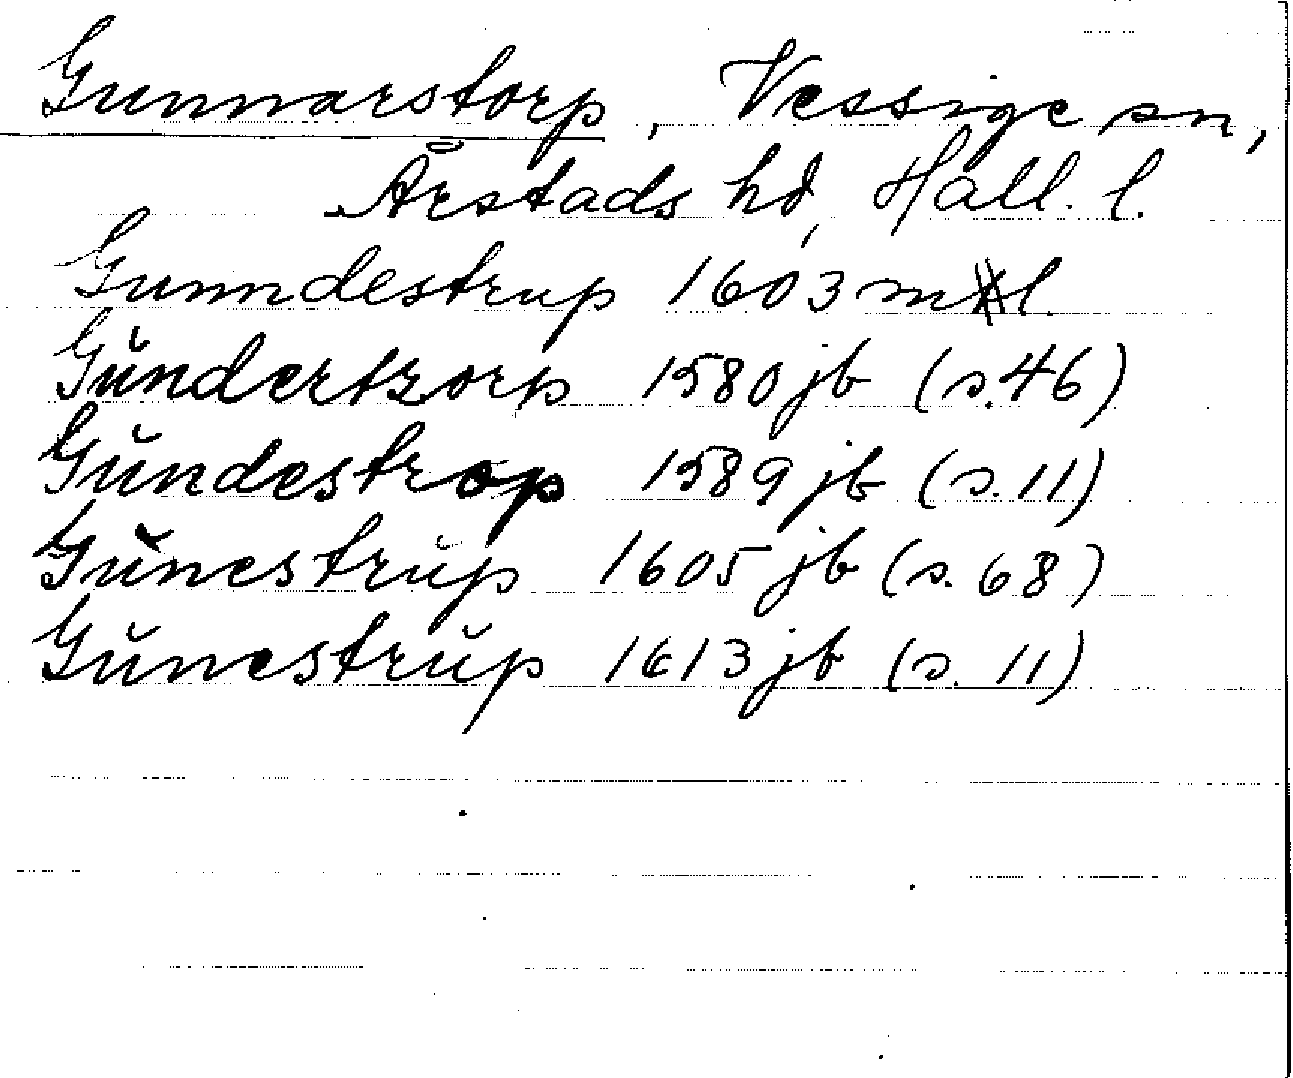 Gunnarstorp, Vessige sn,
Årstads hd, Hall. l.
Gunndestrup 1603 ml.
Gŭndertzorp 1580 jb (s. 46)
Gŭndestrop 1589 jb (s. 11)
Gŭnestrŭp 1605 jb (s. 68)
Gŭnestrŭp 1613 jb (s. 11)